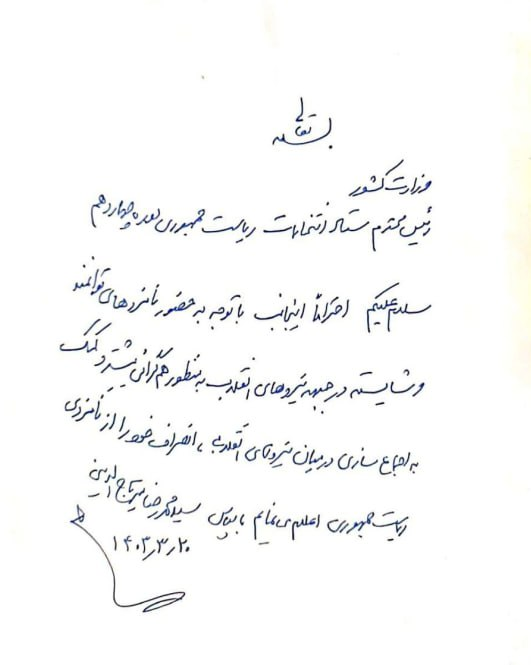 بسمه تعالی
وزارت کشور
رئیس محترم ستاد انتخابات ریاست جمهوری دوره چهاردهم
سلام علیکم احتراماً اینجانب با توجه به حضور نامزدهای توانمند
و شایسته در جبهه نیروهای انقلاب به منظور هم گرائی بیشتر و کمک
به اجماع سازی در میان نیروهای انقلابی، انصراف خود را از نامزدی
ریاست جمهوری اعلام می نمایم با سپاس سید محمدرضا میرتاج الدینی
۱۴۰۳/۳/۲۰